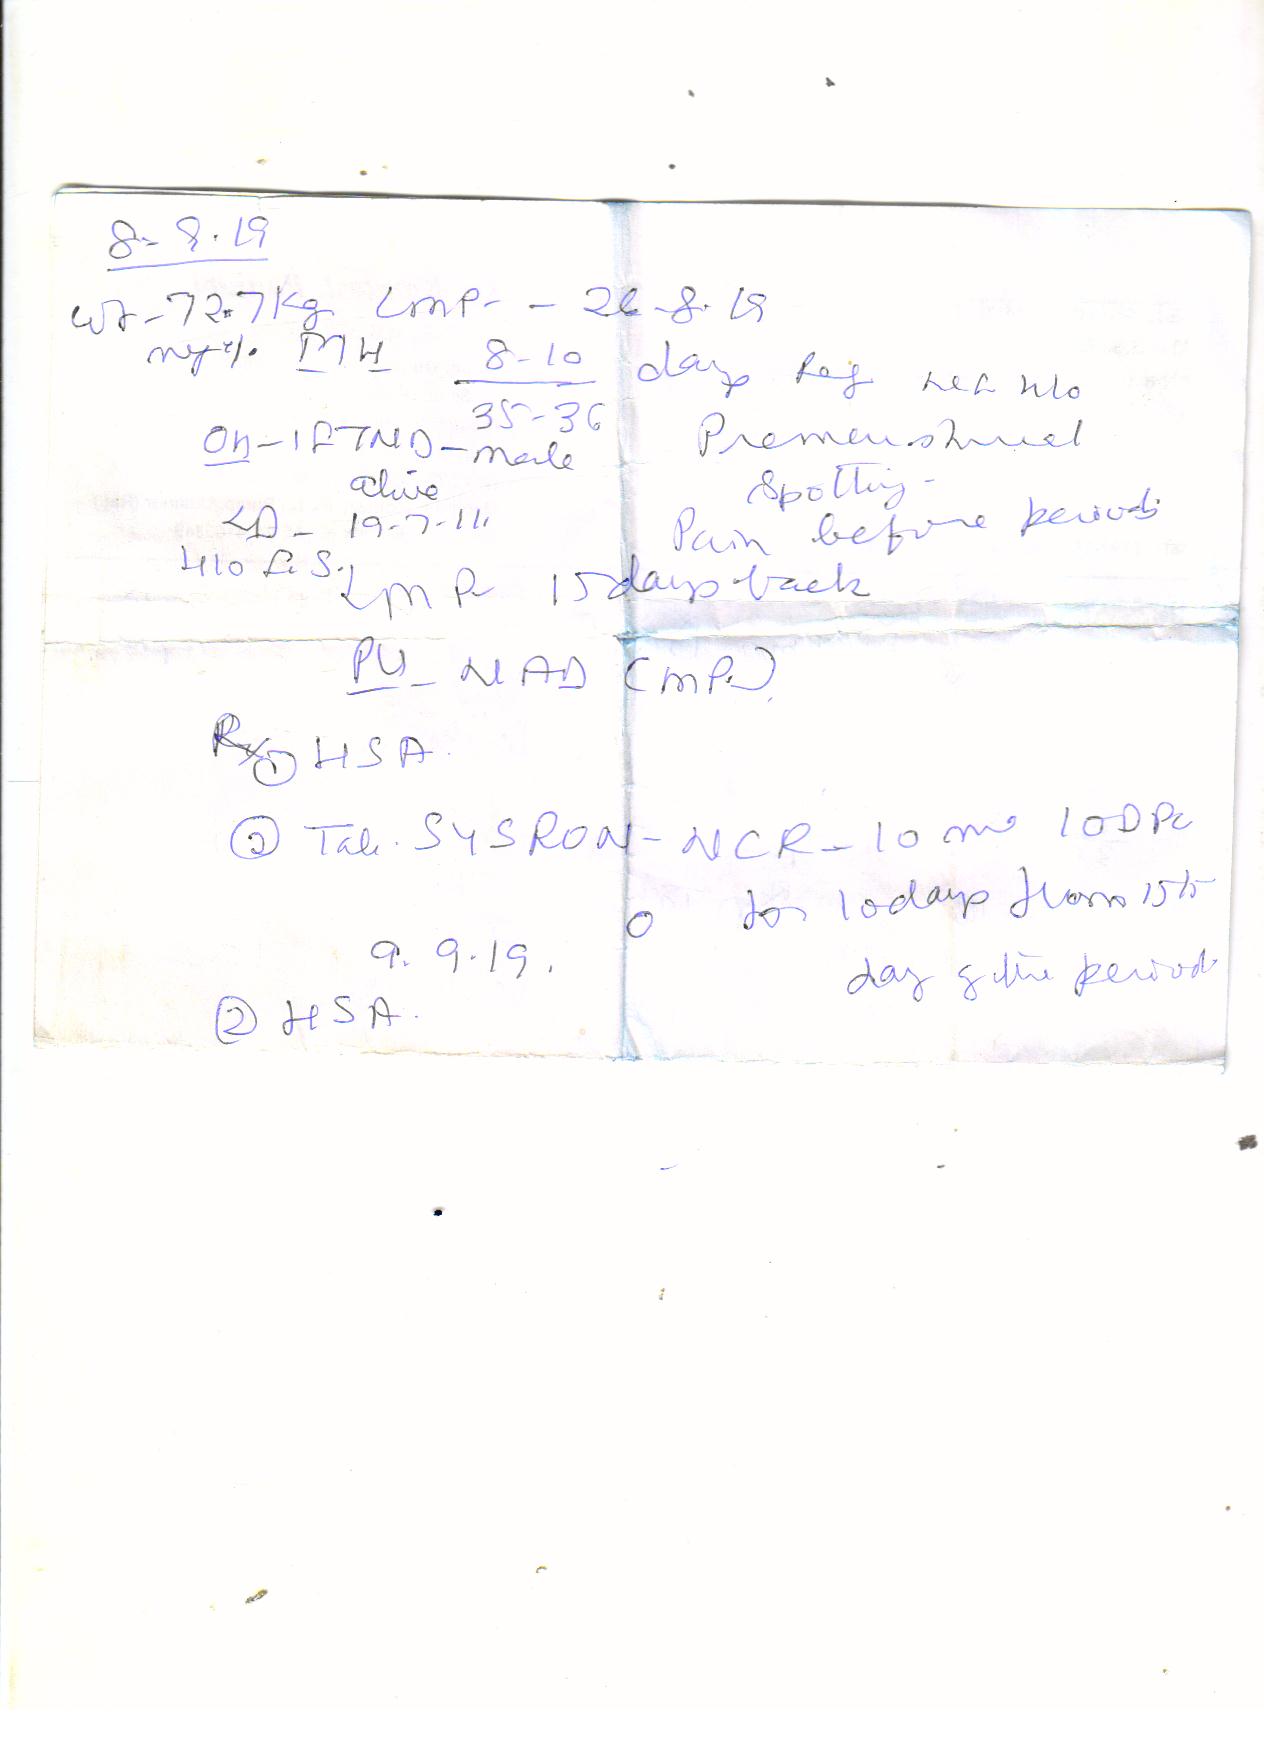 8-9.19
Wt-72.7Kg LMP- - 26-8.19
MH 8-10 days Reg H/o
35-36
OH-1FTND-male Premenstrual
alive Spotting-
LD- 19-7-11 Pain before periods
H/o
LMP 15days back
PV- NAD (MP)
Rx① HSA.
② Tab. SYSRON-NCR-10 10DPC
for 10days from 15th
9.9.19. day of the period
② HSA.